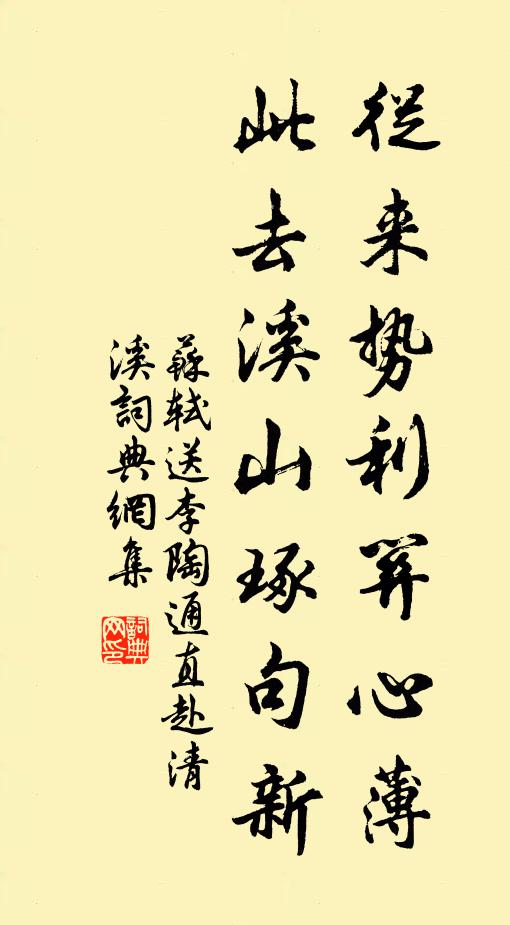 從来势利関心薄
此去溪山琢句新
蘇轼送李陶通直赴清
溪詞典網集
詞典
网印